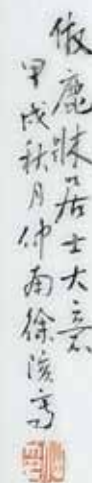 倣鹿牀居士大意
甲戌秋月仲南徐濱寫